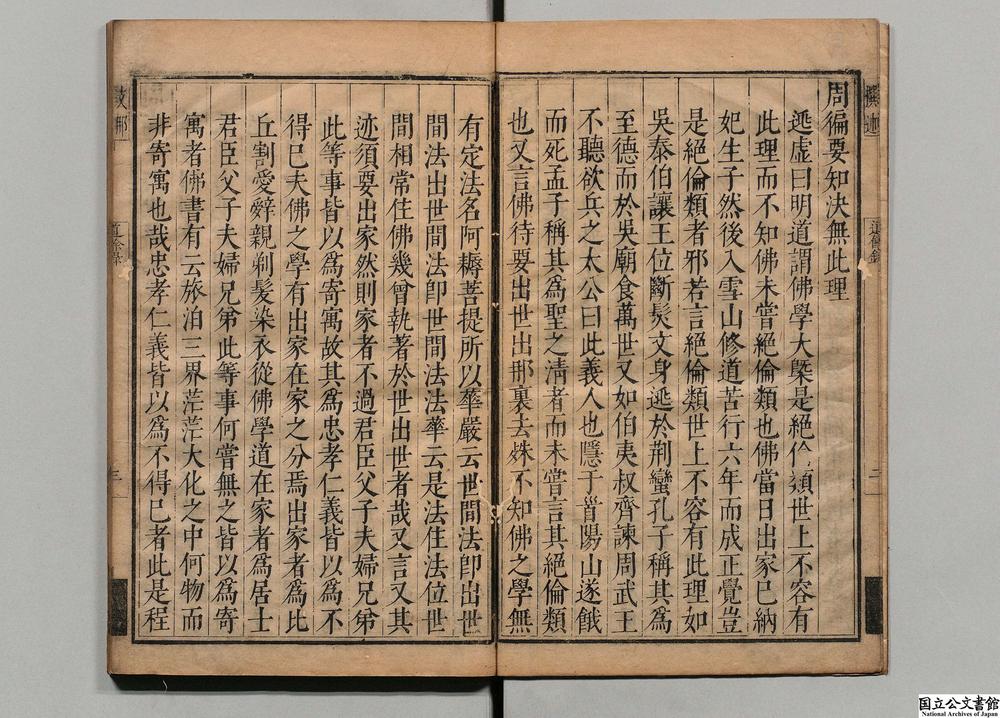 周徧要知決無此理
逃虛曰明道謂佛學大槩是絕倫類世上不容有
此理而不知佛未嘗絕倫類也佛當日出家已納
妃生子然後入雪山修道苦行六年而成正覺豈
是絕倫類者邪若言絕倫類世上不容有此理如
吳泰伯讓王位斷髮文身逃於荆蠻孔子稱其爲
至德而於吳廟食萬世又如伯夷叔齊諫周武王
不聽欲兵之太公曰此義人也隱于首陽山遂餓
而死孟子稱其爲聖之清者而未嘗言其絕倫類
也又言佛待要出世出那裏去姝不知佛之學無
有定法名阿耨菩提所以華嚴云世間法卽出世
間法出世間法卽世間法法華云是法住法位世
間相常住佛幾曾執著於世出世者哉又言又其
迹須要出家然則家者不過君臣父子夫婦兄弟
此等事皆以爲寄寓故其爲忠孝仁義皆以爲不
得已夫佛之學有出家在家之分焉出家者爲比
丘割愛辤親剃髮染衣從佛學道在家者爲居士
君臣父子夫婦兄弟此等事何嘗無之皆以爲寄
寓者佛書有云旅泊三界茫茫大化之中何物而
非寄寓也哉忠孝仁義皆以爲不得已者此是程
道餘錄
二
道餘錄
三
国立公文書館
National Archives of Japan